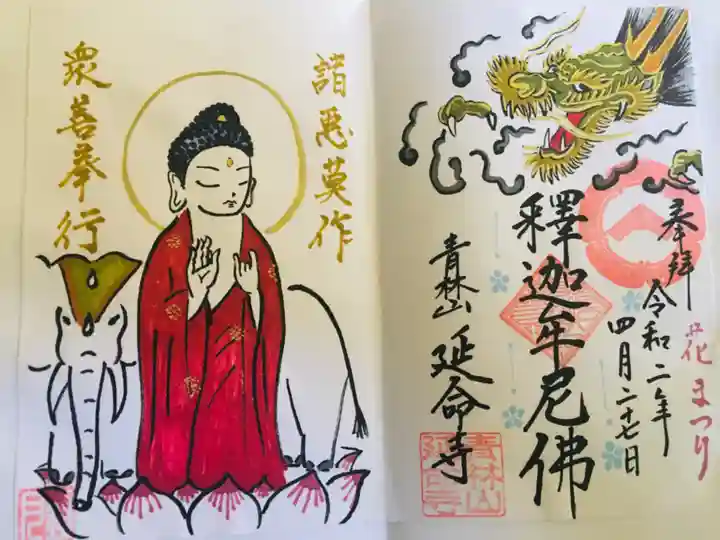 奉拝
花まつり
令和二年
四月二十七日
釋迦牟尼佛
青林山 延命寺
青林山
延命寺
諸悪莫作
衆善奉行